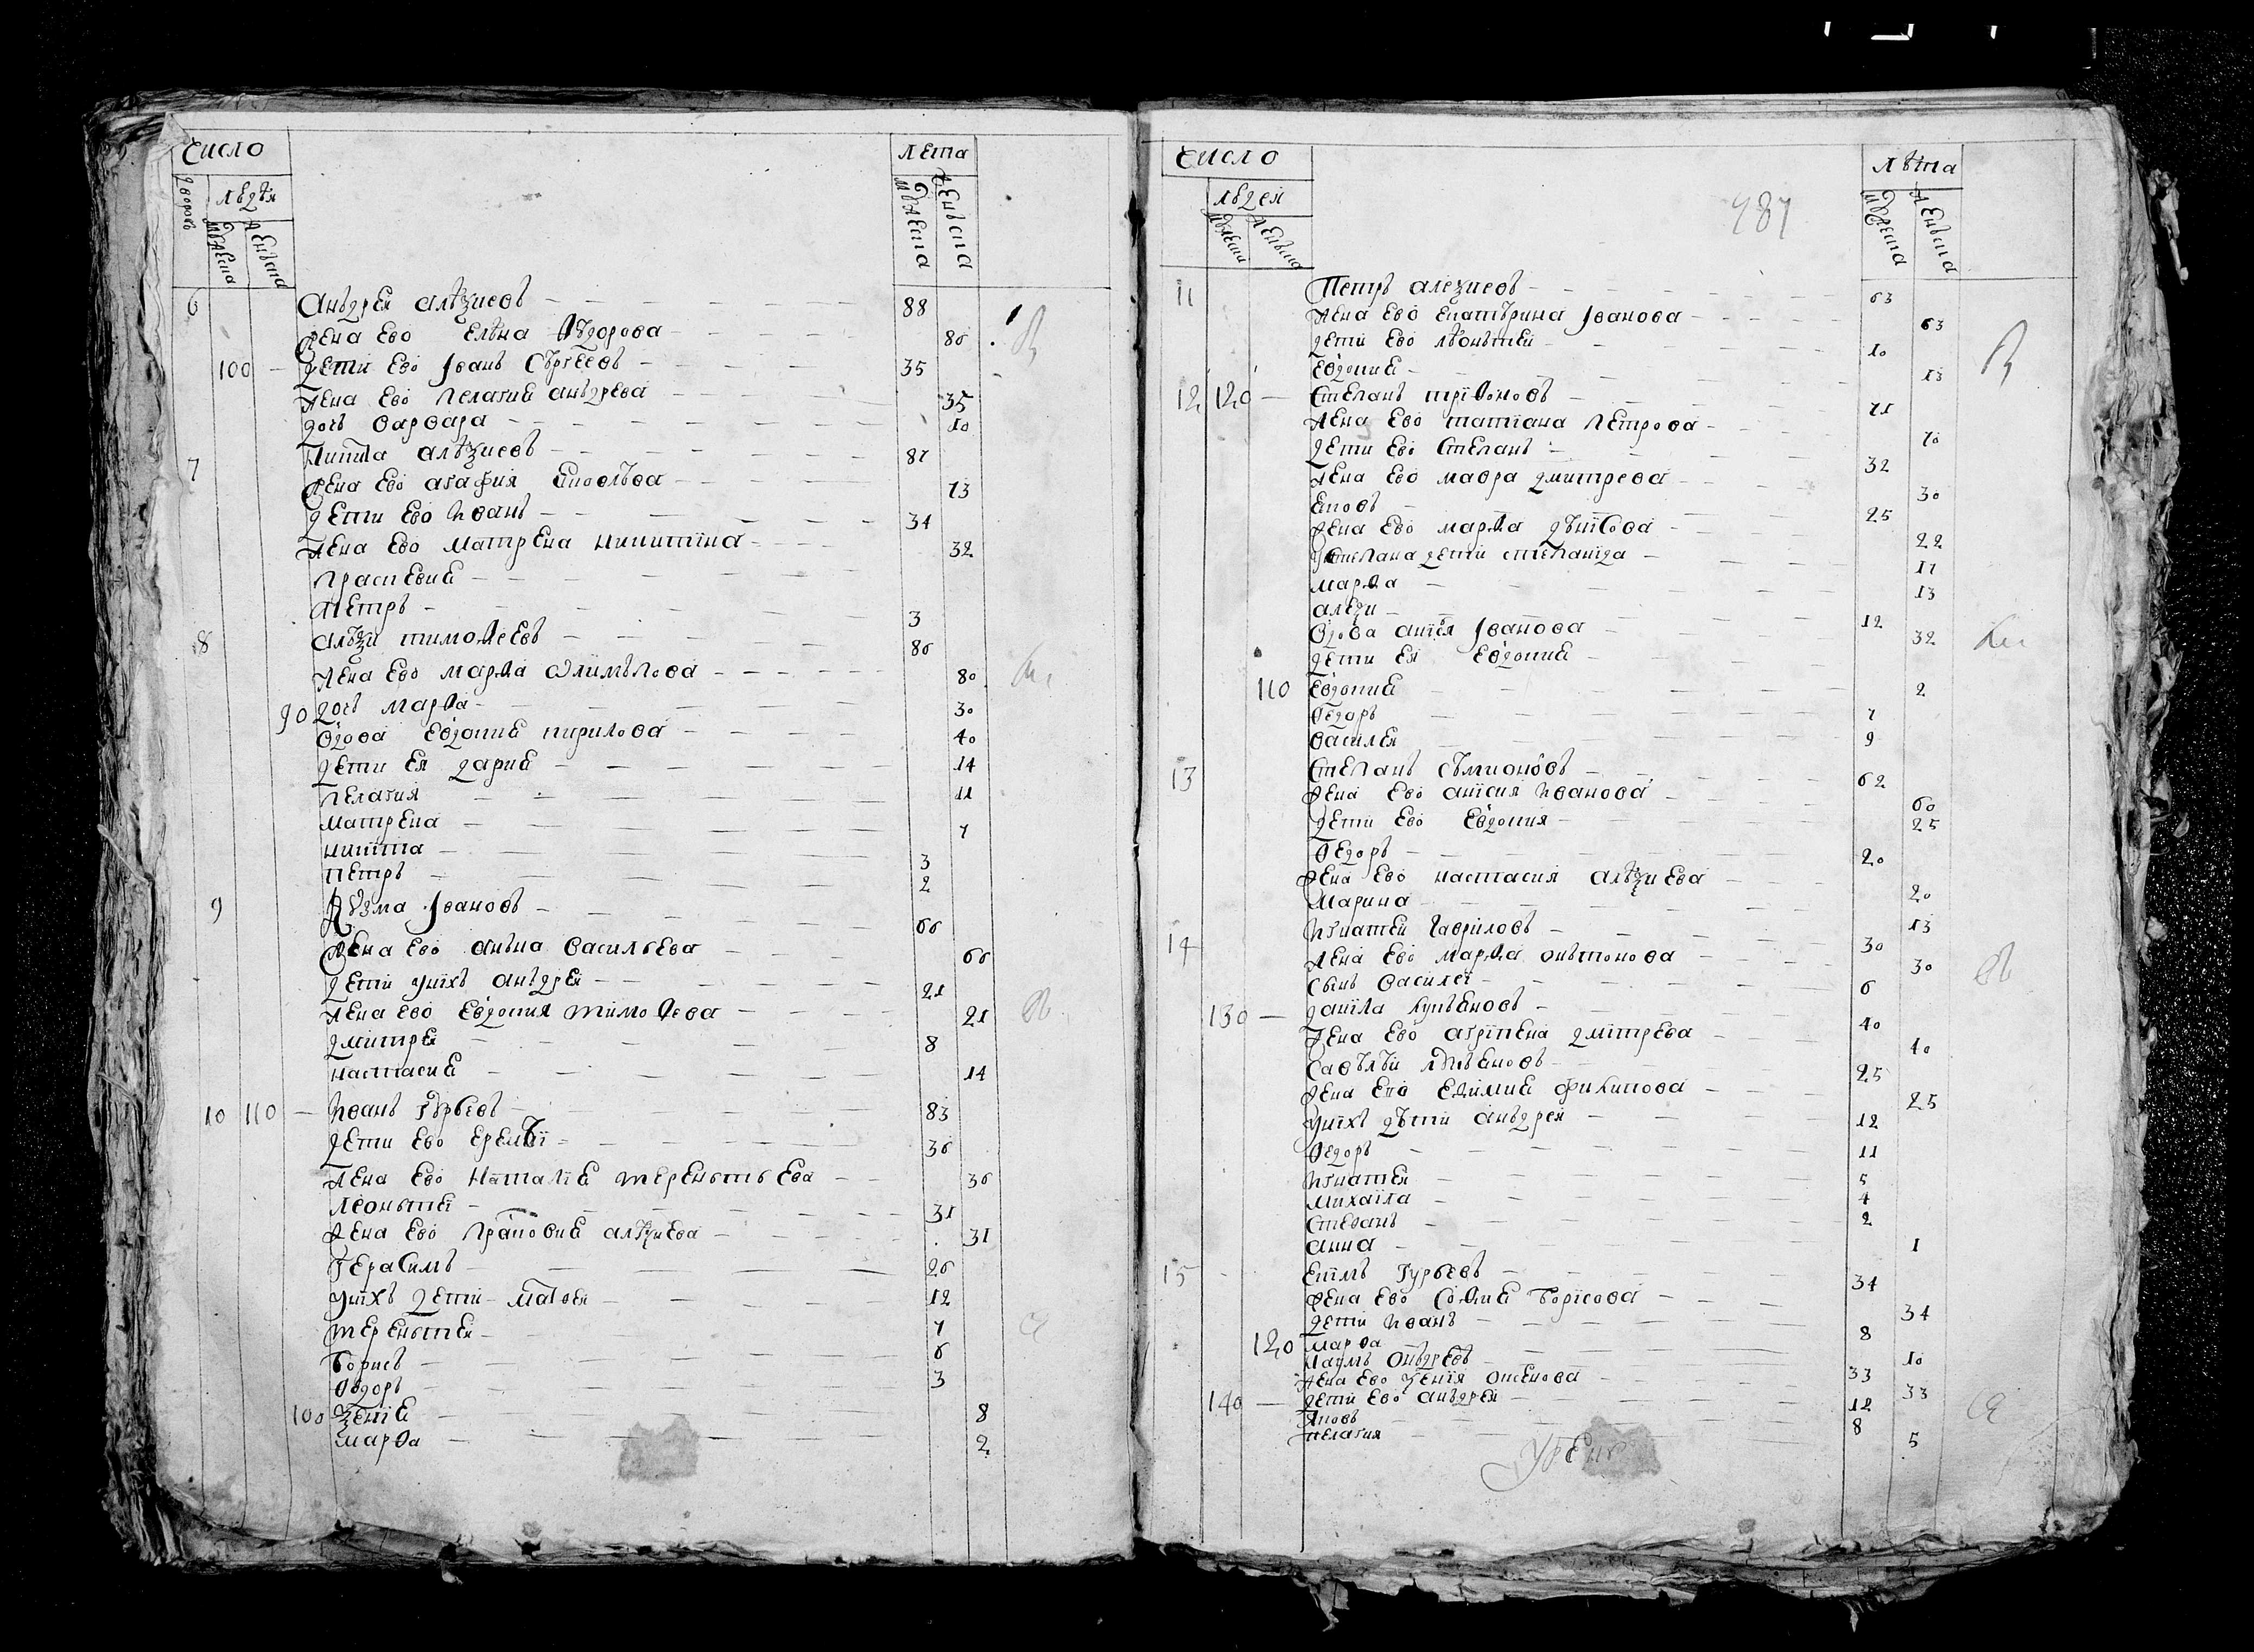 Число
Лета
дворовъ
людѣи
мужеска
женска
мужеска
женска
6 Андреи Алѣѯиевъ 88
жена ево Елѣна Ѳѣдорова 80
100 дети ево Иванъ Сѣргеевъ 35
жена ево Пелагиа Андреева 35
дочь Варвара 10
7 Никита Алѣѯиевъ 87
жена ево Агафия 73
дети ево Иванъ 34
жена ево Матрена Никитина 32
Праскевиа
Петръ 3
8 Алѣѯи Тимоѳеевъ 80
жена ево Марѳа 80
90 дочь Марѳа 30
вдова Евдокиа Кирилова 40
дети ея Дариа 14
Пелагия 11
Матрена 7
Никита 3
Петръ 2
9 Кузма Ивановъ 66
жена ево Аньна Васильева 66
дети у нихъ Андреи 21
жена ево Евдокия Тимоѳева 21
Дмитреи 8
Настасиа 14
10 110 Иванъ Гурьевъ 83
дети ево Еремѣи 36
жена ево Наталиа Тереньтьева 36
Леоньтеи 31
жена ево Прасковиа Алѣѯиева 31
Герасимъ 26
у нихъ дети Матвеи 12
Тереньтеи 7
Борисъ 6
Ѳедоръ 3
100 Ѯениа 8
Марѳа 2
Число
Лѣта
людеи
мужеска
женска
мужеска
женска
487
11 Петръ Алеѯиевъ 63
жена ево Екатѣрина Иванова 63
дети ево Лѣоньтеи 10
Евдокиа 13
12 120 Степанъ Триѳоновъ 71
жена ево Татиана Петрова 70
дети ево Степанъ 32
жена ево Мавра Дмитрева 30
25
жена ево Марѳа 22
у Степана дети Степанида 17
Марѳа 13
Алеѯи 12
вдова Анисия Иванова 32
дети ея Евдокиа
110 Евдокиа 2
Ѳедоръ 7
Василеи 9
13 Степанъ Сѣмионовъ 62
жена ево Анисия Иванова 60
дети ево Евдокия 25
Ѳедоръ 20
жена ево Настасия Алѣѯиева 20
Марина 13
14 Игнатеи Гавриловъ 30
жена ево Марѳа Оньтонова 30
сынъ Василеи 6
130 Данила Лукьяновъ 40
жена ево Агрипена Дмитрева 40
Савѣлѣи Лукьяновъ 25
жена ево Еѳимиа Филипова 25
у нихъ дѣти Андреи 12
Ѳедоръ 11
Игнатеи 5
Михаила 4
Степанъ 2
Анна 1
15 Екимъ Гурьевъ 34
жена ево Соѳиа Борисова 34
дети Иванъ 8
120 Марѳа 10
Наумъ Ондреевъ 33
жена ево 33
140 дети ево Андреи 12
Яковъ 8
Пелагия 5